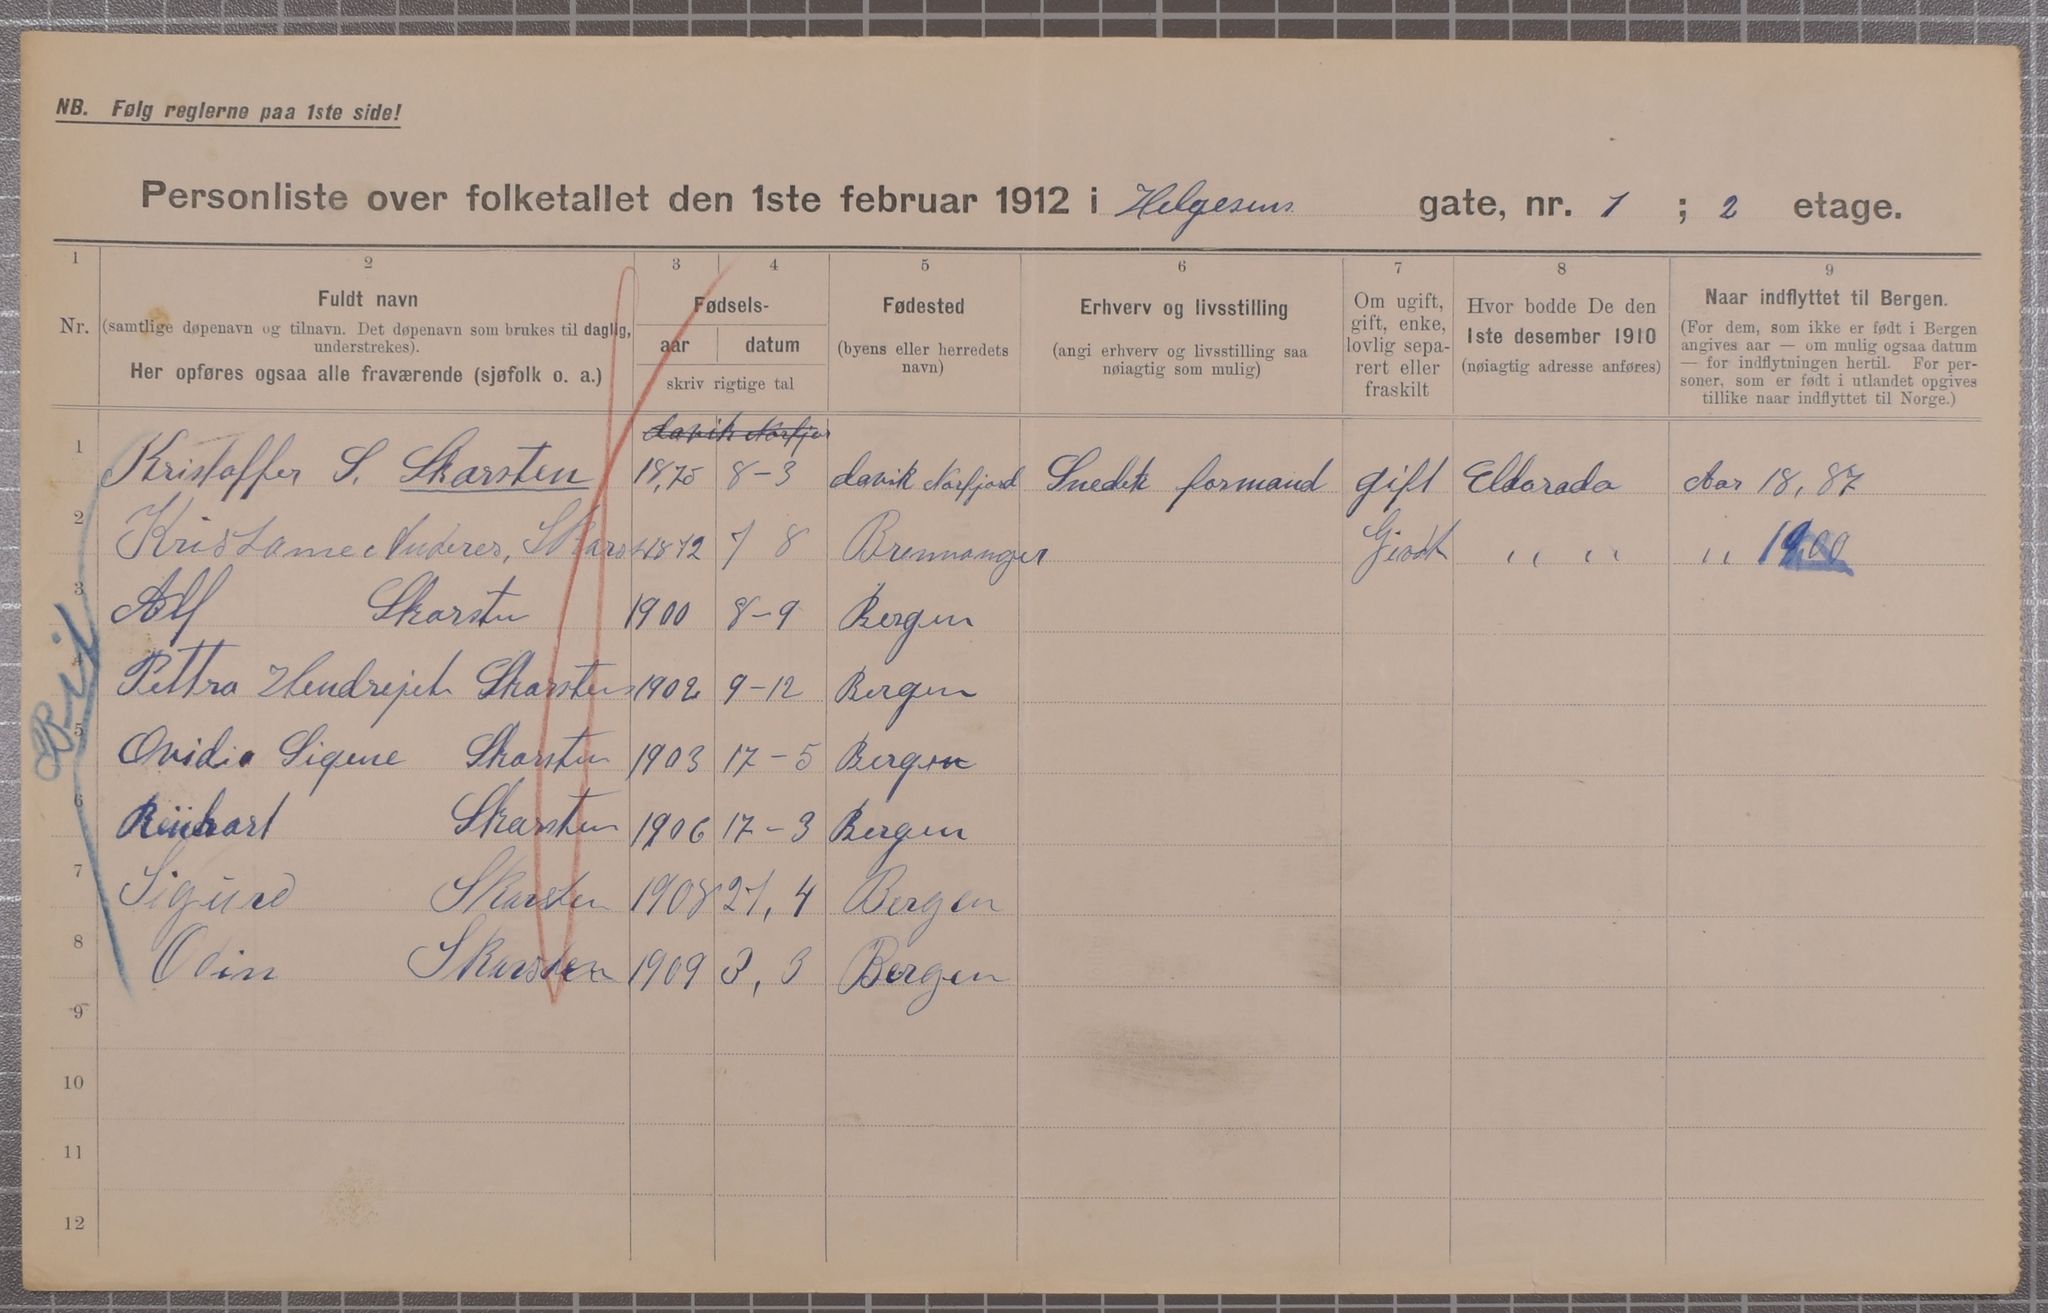 NB. Følg reglerne paa 1ste side!
Personliste over folketallet den 1ste februar 1912 i Helgesens gate, nr. 1 ; 2 etage.
1 2 3 4 5 6 7 8 9
Nr.
Fuldt navn
(samtlige døpenavn og tilnavn. Det døpenavn som brukes til daglig,
understrekes).
Her opføres ogsaa alle fraværende (sjøfolk o. a.)
Fødsels-
aar datum
skriv rigtige tal
Fødested
(byens eller herredets
navn)
Erhverv og livsstilling
(angi erhverv og livsstilling saa
nøiagtig som mulig)
Om ugift,
gift, enke,
lovlig sepa-
rert eller
fraskilt
Hvor bodde De den
1ste desember 1910
(nøiagtig adresse anføres)
Naar indflyttet til Bergen.
(For dem, som ikke er født i Bergen
angives aar — om mulig ogsaa datum
— for indflytningen hertil. For per-
soner, som er født i utlandet opgives
tillike naar indflyttet til Norge.)
davik Norfjor
1 Kristoffer S. Skarsten 18,75 8-3 davik Norfjord Snedk formand gift Eldorado Aar 18,87
2 Skars 1872 7 8 Giwdt ,, ,, ,, 19,00
3 Alf Skarsten 1900 8-9 Bergen
4 Pettra Skarsten 1902 9-12 Bergen
5 Ovidia Signe Skarsten 1903 17-5 Bergen
6 Skarsten 1906 17-3 Bergen
7 Sigurd Skarsten 1908 27,4 Bergen
8 Odin Skarsten 1909 3,3 Bergen
9
10
11
12